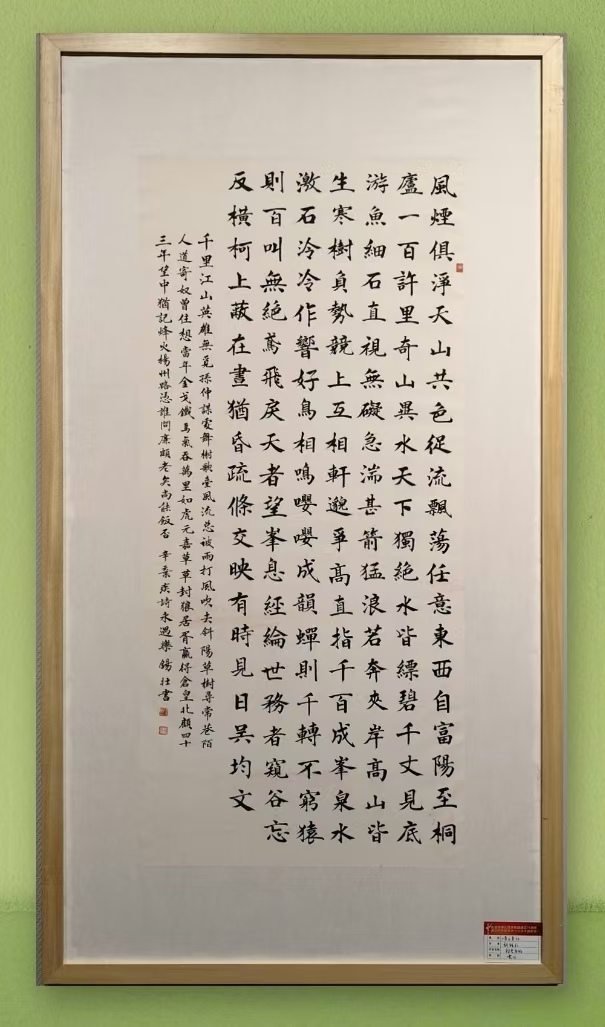 風煙俱淨天山共色從流飄蕩任意東西自富陽至桐
廬一百許里奇山異水天下獨絕水皆縹碧千丈見底
游魚細石直視無礙急湍甚箭猛浪若奔夾岸高山皆
生寒樹負勢競上互相軒邈爭高直指千百成峯泉水
激石泠泠作響好鳥相鳴嚶嚶成韻蟬則千轉不窮猿
則百叫無絕鳶飛戾天者望峯息經綸世務者窺谷忘
反橫柯上蔽在晝猶昏疏條交映有時見日吳均文
千里江山英雄無覓孫仲謀處舞榭歌臺風流總被雨打風吹去斜陽草樹尋常巷陌
人道寄奴曾住想當年金戈鐵馬氣吞萬里如虎元嘉草草封狼居胥贏得倉皇北顧四十
三年望中猶記烽火揚州路憑誰問廉頗老矣尚能飯否 辛棄疾詩永遇樂 書